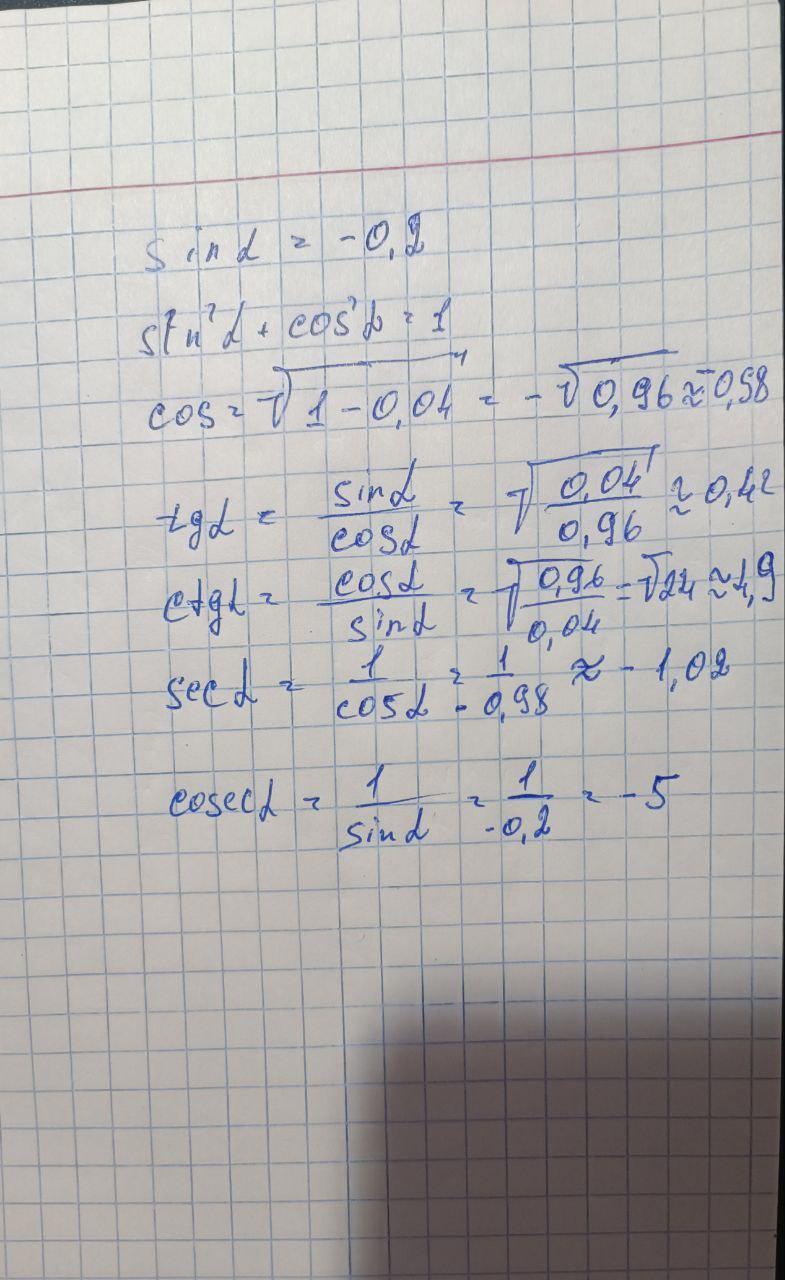 sin α = -0,2
sin²α + cos²α = 1
cos = √1 - 0,04 = - √0,96 ≈ -0,98
tg α = sin α / cos α = √0,04 / 0,96 ≈ 0,42
ctg α = cos α / sin α = √0,96 / 0,04 = √24 ≈ 4,9
sec α = 1 / cos α = 1 / - 0,98 ≈ - 1,02
cosec α = 1 / sin α = 1 / -0,2 = - 5